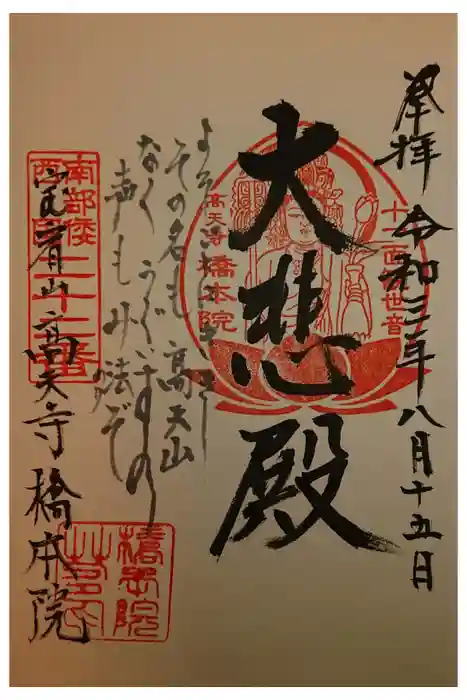 奉拝 令和三年八月十五日
大悲殿
十一面観世音
高天寺橋本院
その名も高天山
なくうぐいすの
声もみ法ぞ
南部倭
西国
二十二番
宝宥山高天寺橋本院
橋本院